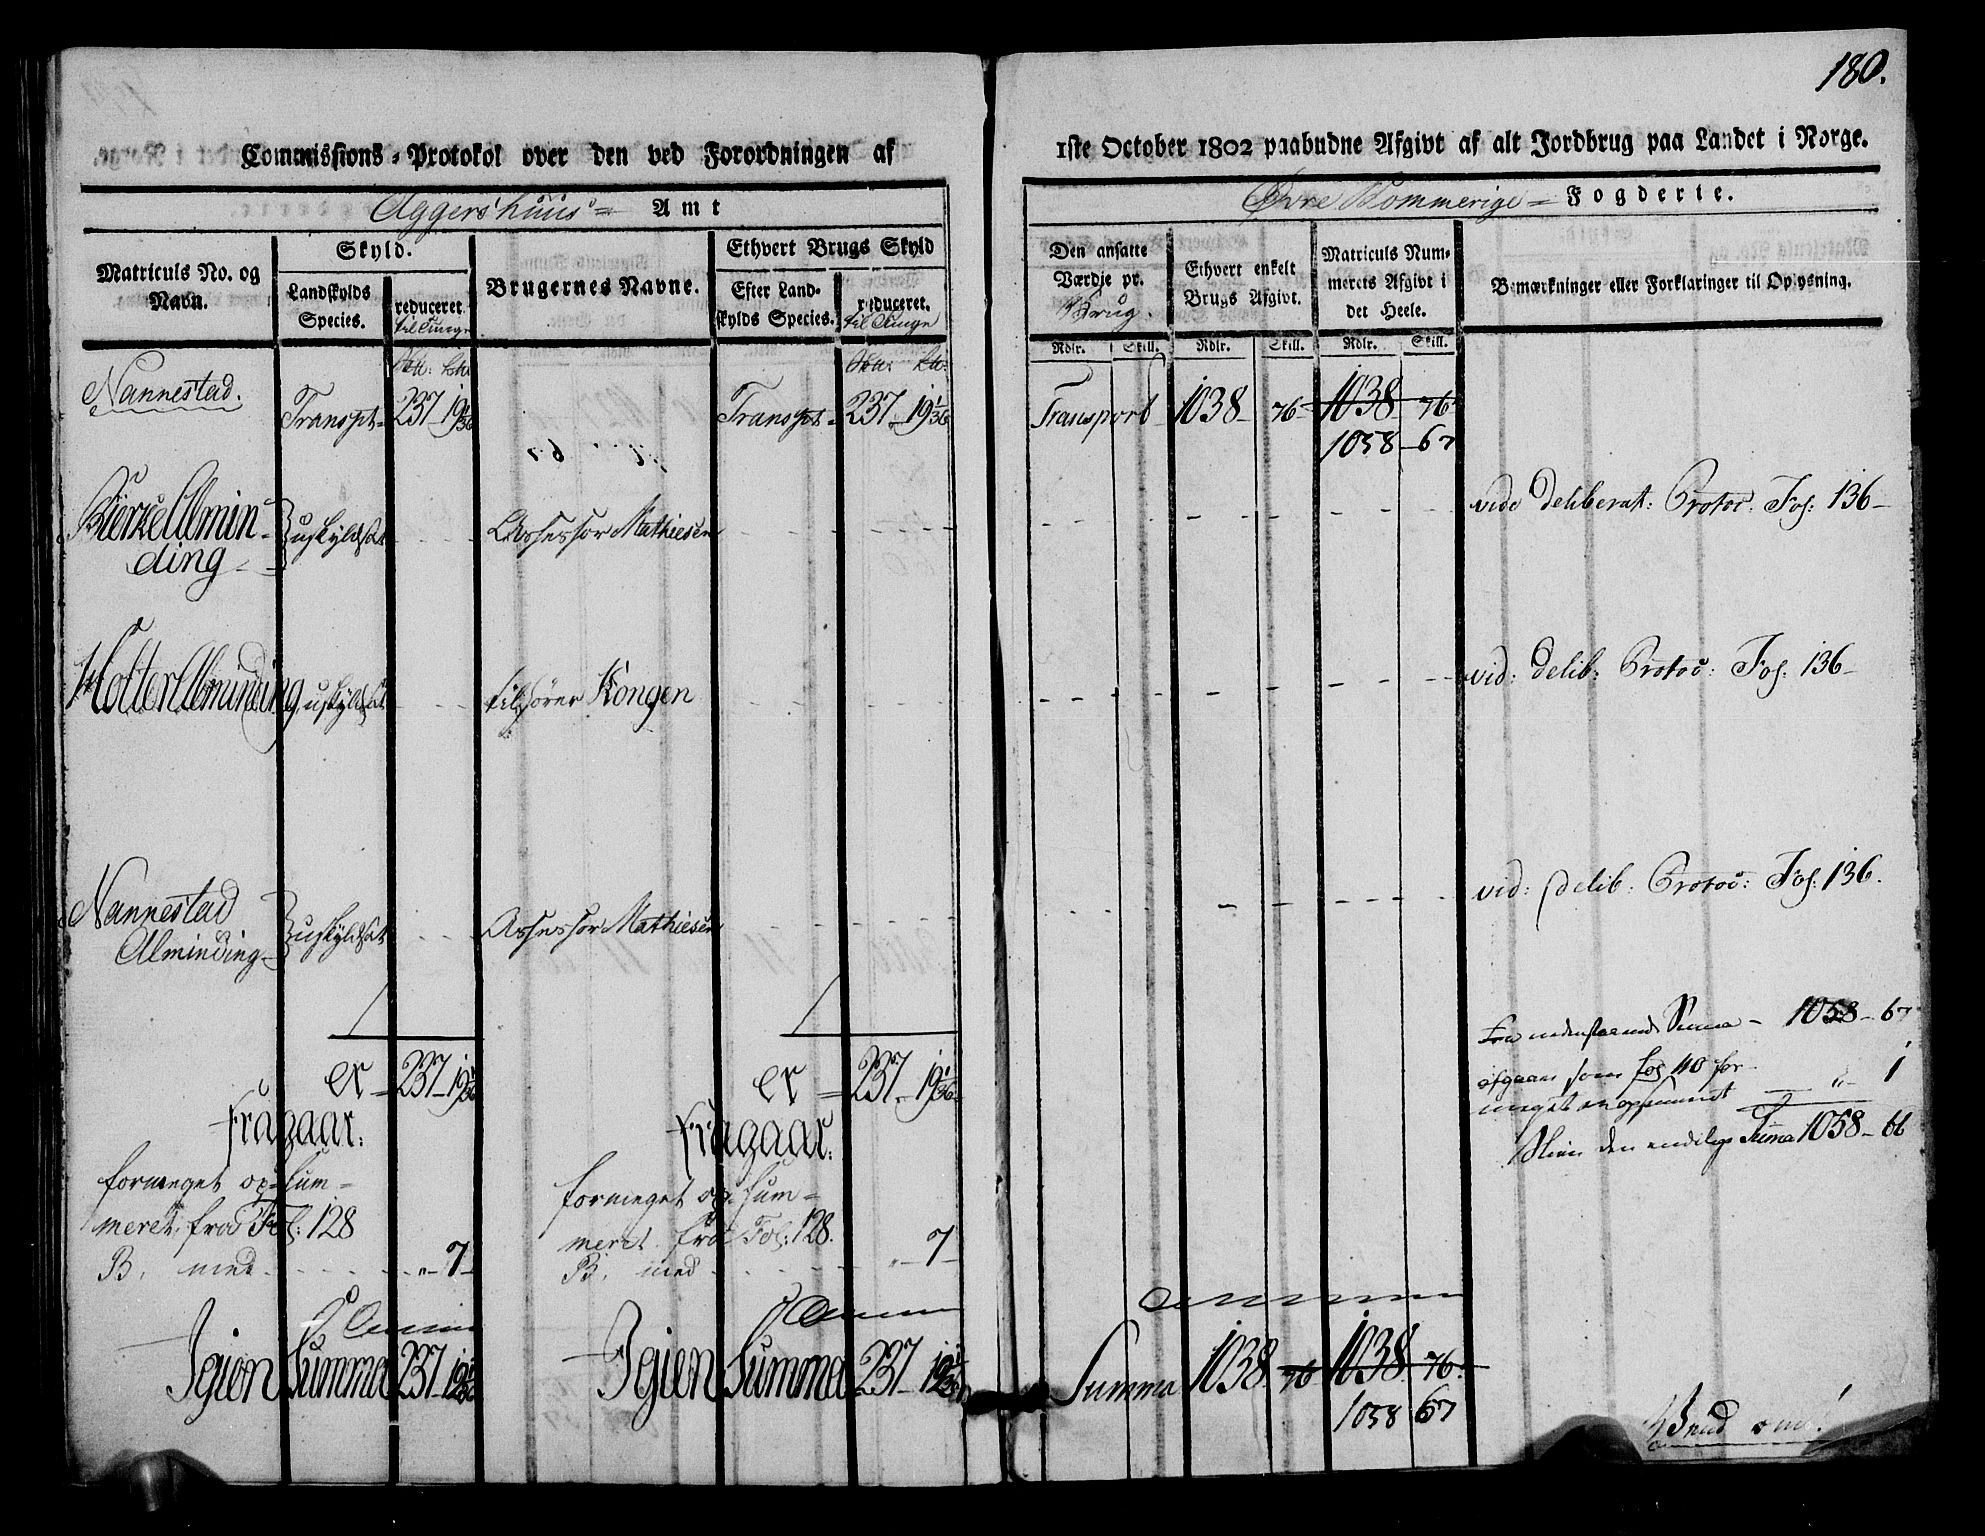 180.
Commissions-Protokol over den ved Forordningen af
1ste October 1802 paabudne Afgivt af alt Jordbrug paa Landet i Norge.
Aggershuus Amt
Øvre Rommerige Fogderie.
Matriculs No. og Navn.
Skyld.
Landskylds Species.
reduceret til Tunge
Brugernes Navne.
Ethvert Brugs Skyld
Efter Landskylds Species.
reduceret. til Tunge
Den ansatte Værdje pr. Brug.
Ethvert enkelt Brugs Afgivt.
Matriculs Nummerets Afgivt i det Heele.
Bemærkninger eller Forklaringer til Oplysning.
Rdlr. Skill. Rdlr. Skill. Rdlr. Skill.
Nannestad. Transpt 237 19 1/36 Transpt 237 19 1/36 Transport 1038 76 1038 76
1058 67
Bierke Almin-
ding uskyldsat Assessor Mathiesen vide deliberat: Protoc. Fol: 136
Holter Alminding uskyldsat tilhører Kongen vid: delib: Protoc: Fol: 136
Nannestad
Alminding uskyldsat Assessor Mathiesen vid: delib: Protoc: Fol: 136.
Summa 1058 67
er 237 19 1/36 er 237 19 1/36
afgaar som fol 110 for-
meget 1
Fragaar: Fragaar:
den endelige Summa 1058 66
formeget op-sum-
meret fra Fol: 128
B. med 7
formeget op-sum-
meret fra Fol: 128.
B. med 7
Igien Summa 237 19 1/36 Igien Summa 237 19 1/36 Summa 1038 76 1038 76
1058 67
Vend om!